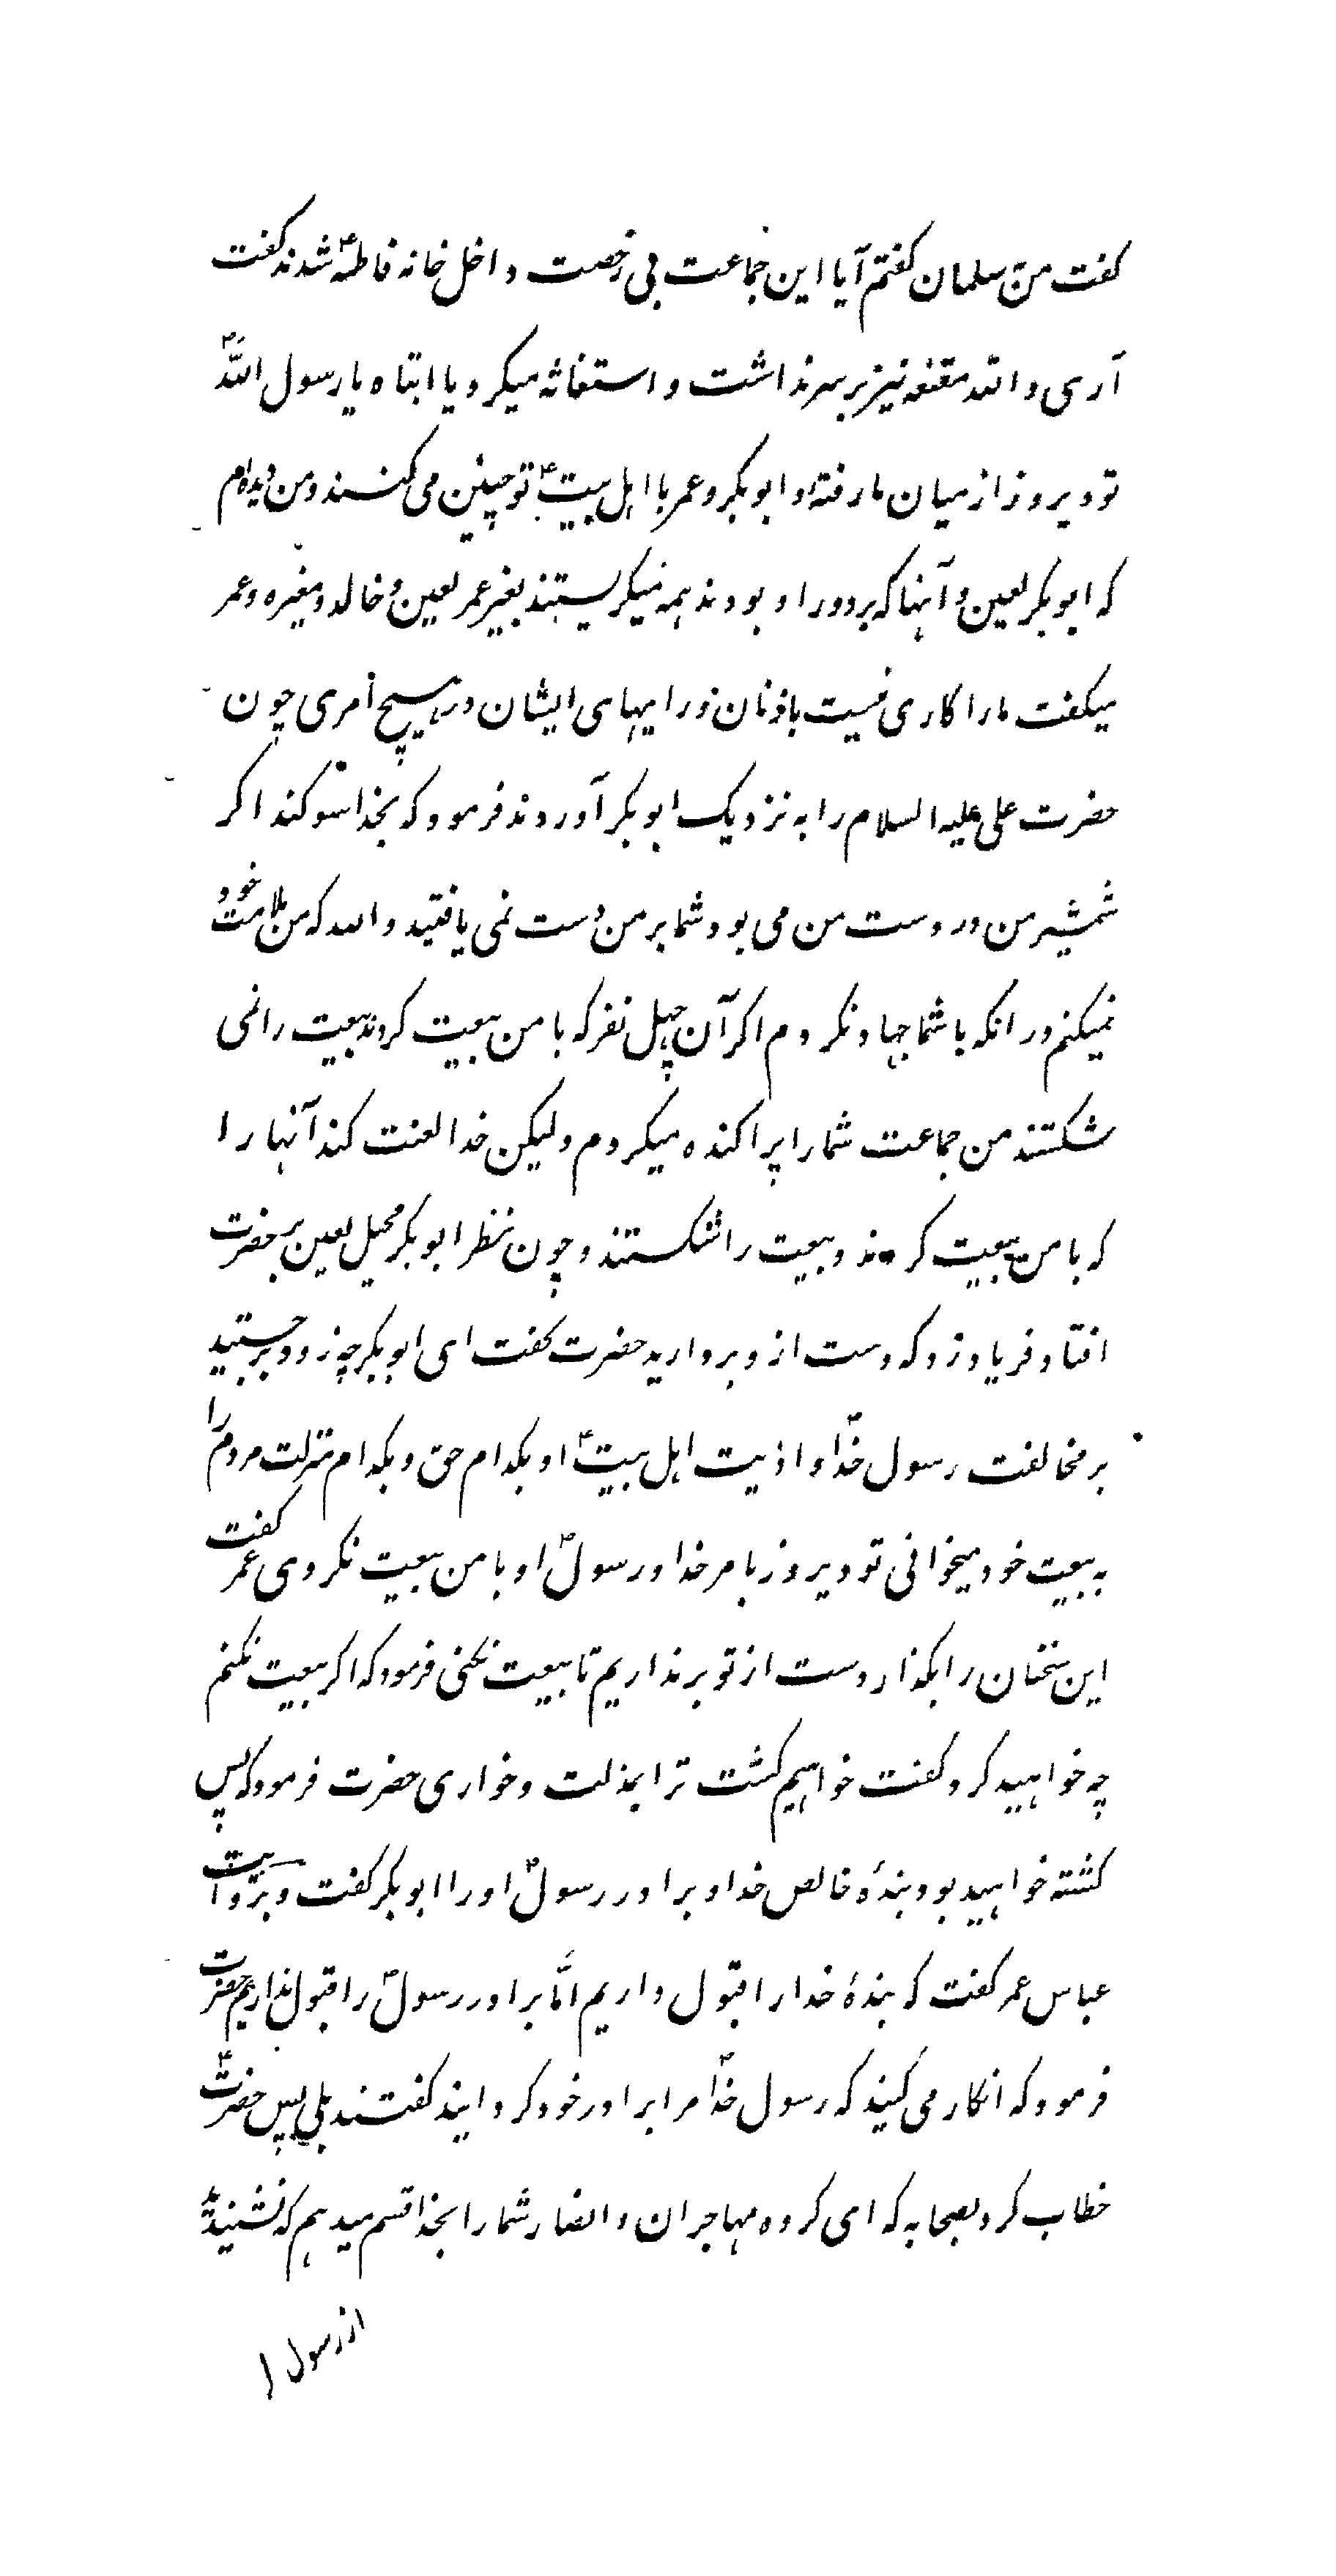 کفت من سلمان کفتم آیا این جماعت بی رخصت داخل خانه فاطمهؑ شدند کفت
آری والله مقنعه نیز بر سر نداشت و استغاثه میکرد یا ابتاه یا رسول اللهؐ
تو دیروز از میان ما رفتهٔ و ابوبکر و عمر با اهل بیتؑ تو چنین می کنند و من دیدم
که ابوبکر لعین و آنها که بر دور او بودند همه میکریستند بغیر عمر لعین و خالد و مغیره و عمر
میکفت ما را کاری نیست با زنان و رایهای ایشان در هیچ امری چون
حضرت علی علیه السلام را به نزدیک ابوبکر آوردند فرمود که بخدا سوکند اکر
شمشیر من در دست من می بود شما بر من دست نمی یافتید والله که من ملامت خود
نمیکنم در انکه با شما جهاد نکردم اکر آن چهل نفر که با من بیعت کردند بیعت را نمی
شکستند من جماعت شما را پراکنده میکردم ولیکن خدا لعنت کند آنها را
که با من بیعت کردند و بیعت را شکستند و چون نظر ابوبکر محیل لعین بر حضرت
افتاد فریاد زد که دست از و بردارید حضرت کفت ای ابوبکر چه زود برجستید
بر مخالفت رسول خداؐ و اذیت اهل بیتؑ او بکدام حق و بکدام منزلت مردم را
به بیعت خود میخوانی تو دیروز بامر خدا و رسولؐ او با من بیعت نکردی عمر کفت
این سخنان را بکذار دست از تو برنداریم تا بیعت نکنی فرمود که اکر بیعت نکنم
چه خواهید کرد کفت خواهیم کشت ترا بمذلت و خواری حضرت فرمود که پس
کشته خواهید بود بندهٔ خالص خدا و برادر رسولؐ او را ابوبکر کفت و بروایت
عباس عمر کفت که بندهٔ خدا را قبول داریم امّا برادر رسولؐ را قبول نداریم حضرت
فرمود که انکار می کنید که رسول خداؐ مرا برادر خود کردانید کفتند بلی پس حضرتؑ
خطاب کرد بصحابه که ای کروه مهاجران و انصار شما را بخدا قسم میدهم که نشنیدید
از رسول ا